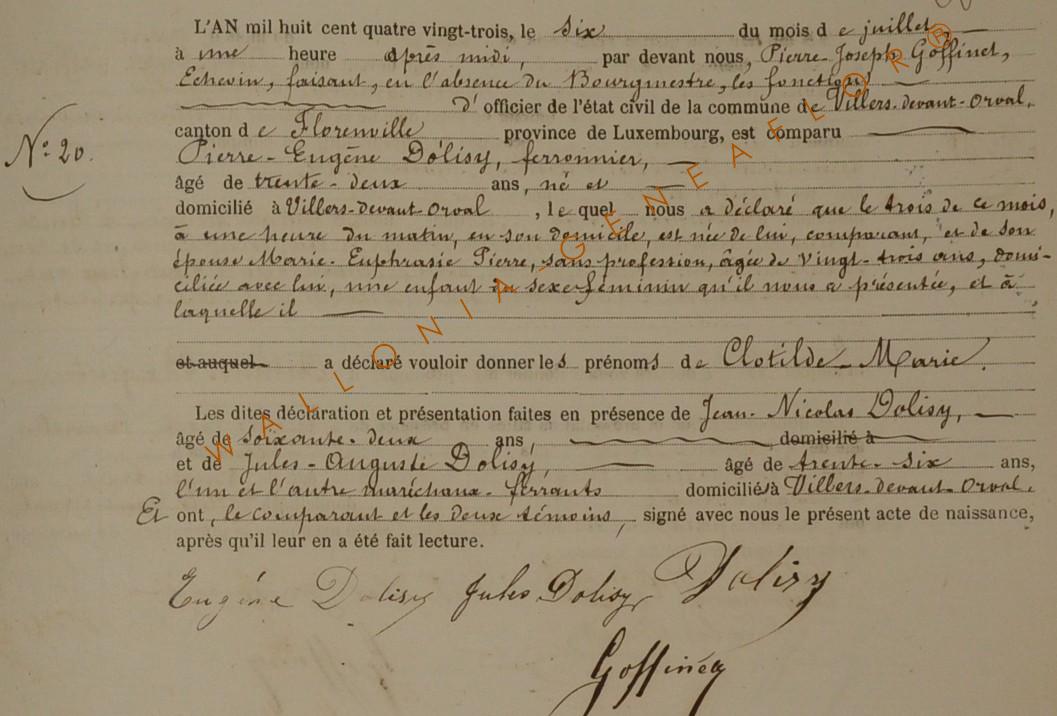 L'AN mil huit cent quatre vingt-trois, le six du mois de juillet,
à une heure après midi, par devant nous, Pierre-Joseph Goffinet,
Echevin, faisant, en l'absence du Bourgmestre, les fonctions
d'officier de l'état civil de la commune de Villers-devant-Orval,
canton de Florenville province de Luxembourg, est comparu
Nº 20.
Pierre-Eugène Dolisy, ferronnier,
âgé de trente-deux ans, né et
domicilié à Villers-devant-Orval, lequel nous a déclaré que le trois de ce mois,
à une heure du matin, en son domicile, est née de lui, comparant, et de son
épouse Marie-Euphrasie Pierre, sans profession, âgée de vingt-trois ans, domi-
ciliée avec lui, une enfant de sexe féminin qu'il nous a présentée, et à
laquelle il
et auquel a déclaré vouloir donner les prénoms de Clotilde-Marie.
Les dites déclaration et présentation faites en présence de Jean-Nicolas Dolisy,
âgé de soixante-deux ans, domicilié à
et de Jules-Auguste Dolisy, âgé de trente-six ans,
l'un et l'autre maréchaux-ferrants domiciliés à Villers-devant-Orval.
Et ont, le comparant et les deux témoins, signé avec nous le présent acte de naissance,
après qu'il leur en a été fait lecture.
Eugène Dolisy Jules Dolisy Dolisy
Goffinet
WALLONIA-GENEAFLORB